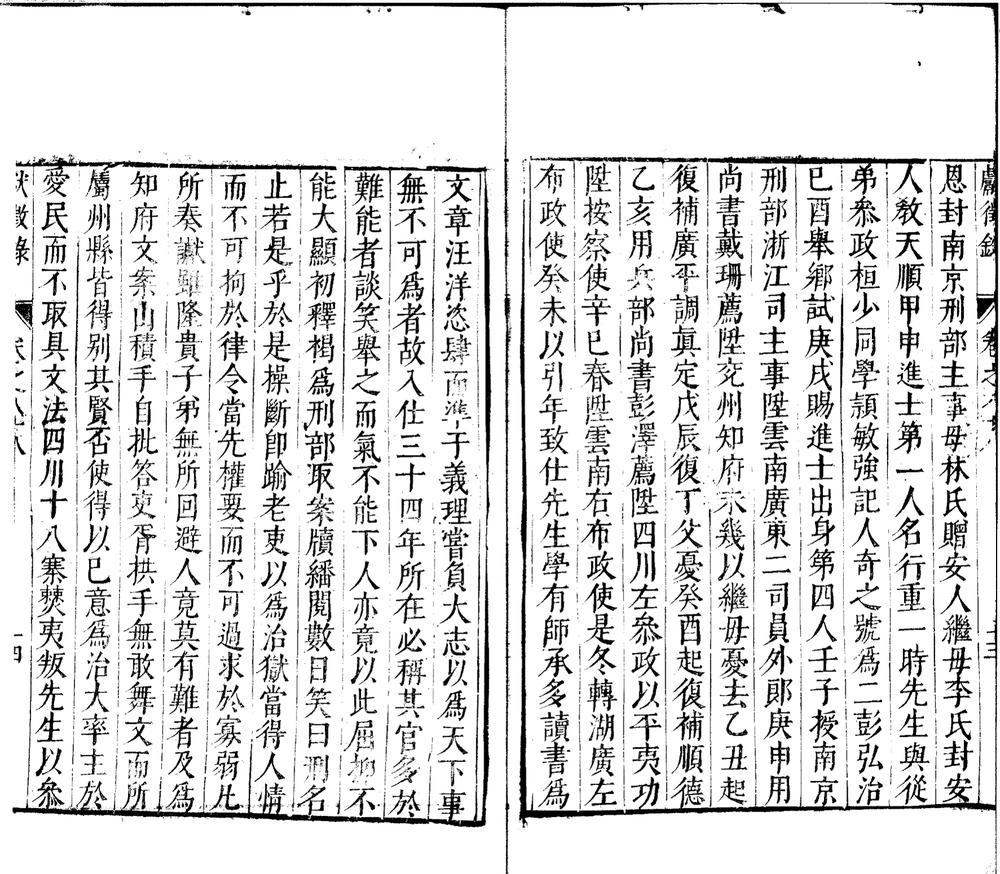 恩封南京刑部主事母林氏贈安人繼母李氏封安
人敎天順甲申進士第一人名行重一時先生與從
弟叅政桓少同學頴敏強記人奇之號爲二彭弘治
巳酉舉鄉試庚戌賜進士出身第四人壬子授南京
刑部浙江司主事陞雲南廣東二司員外郎庚申用
尚書戴珊薦陞兖州知府未幾以繼母憂去乙丑起
復補廣平調眞定戊辰復丁父憂癸酉起復補順德
乙亥用兵部尚書彭澤薦陞四川左叅政以平夷功
陞按察使辛巳春陞雲南右布政使是冬轉湖廣左
布政使癸未以引年致仕先生學有師承多讀書爲
文章汪洋恣肆而準于義理嘗負大志以爲天下事
無不可爲者故入仕三十四年所在必稱其官多於
難能者談笑舉之而氣不能下人亦竟以此屈抑不
能大顯初釋褐爲刑部取案牘繙閱數日笑曰刑名
止若是乎於是操斷卽踰老吏以爲治獄當得人情
而不可拘於律令當先權要而不可過求於寡弱凢
所奏讞雖隆貴子弟無所回避人竟莫有難者及爲
知府文案山積手自批答吏胥拱手無敢舞文而所
屬州縣皆得别其賢否使得以巳意爲治大率主於
愛民而不取具文法四川十八寨僰夷叛先生以叅
獻徵錄 卷之八十八 十四